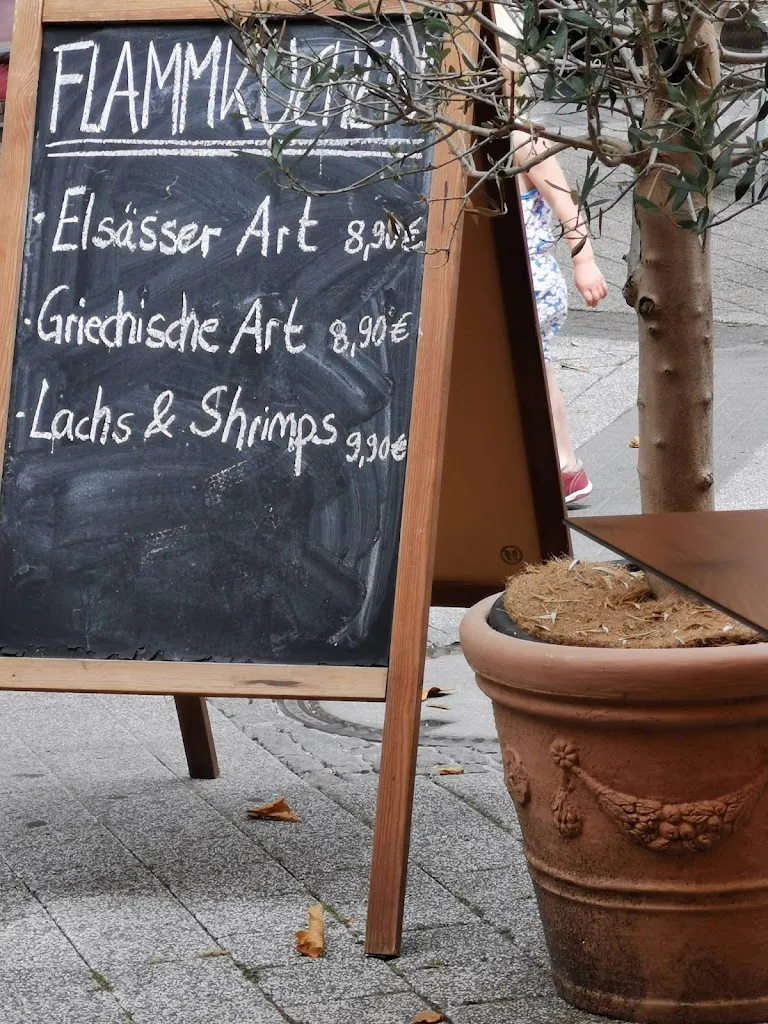 FLAMMKUCHEN
· Elsässer Art 8,90€
· Griechische Art 8,90€
· Lachs & Shrimps 9,90€